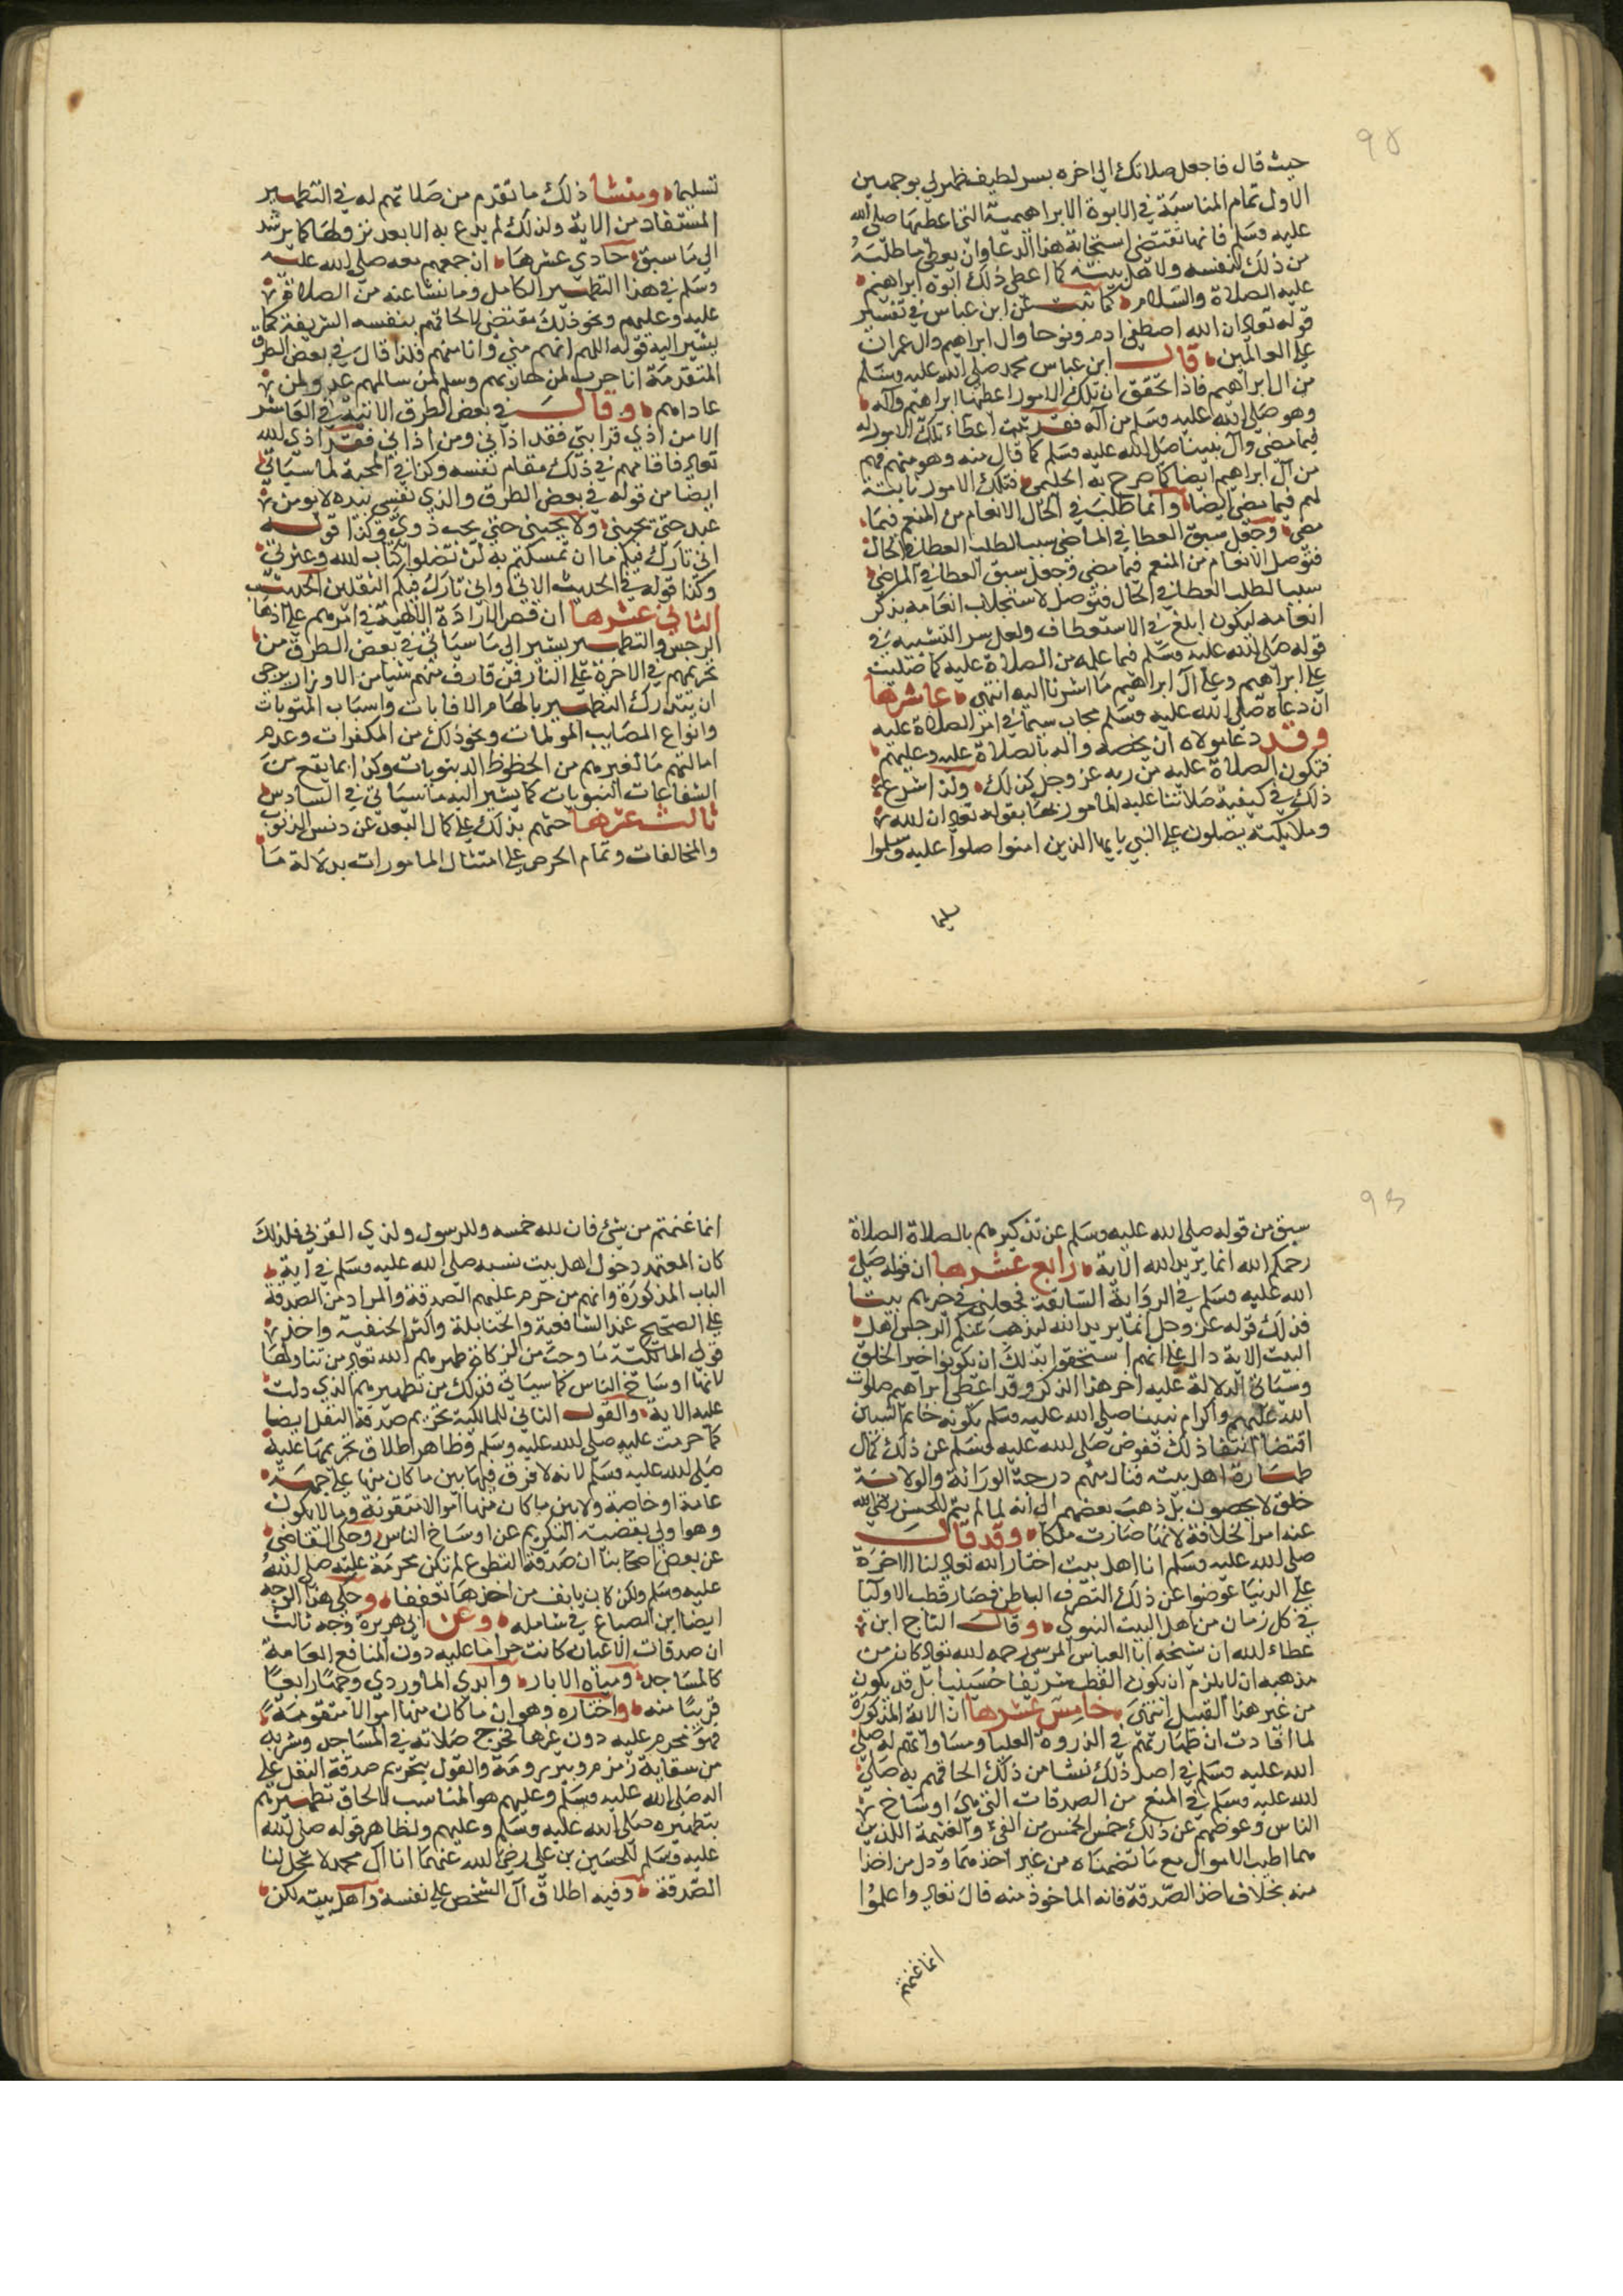 ٩٢
حيث قال فاجعل صلاتك الى اخره بسر لطيف ظهر لي بوجهين
الاول تمام المناسبة في الابوة الابراهيمية التي اعطيها صلى الله
عليه وسلم فانها تقتضي استجابة هذا الدعا وان يعطى ما طلبه
من ذلك لنفسه ولاهل بيته كما اعطى ذلك ابوه ابراهيم
عليه الصلاة والسلام كما ثبت عن ابن عباس في تفسير
قوله تعالى ان الله اصطفى ادم ونوحا وال ابراهيم وال عمران
على العالمين قال ابن عباس محمد صلى الله عليه وسلم
من ال ابراهيم فاذا تحقق ان تلك الامور اعطيها ابراهيم وآله
وهو صلى الله عليه وسلم من آله فقد ثبت اعطاء تلك الامور له
فيما مضى وآل نبينا صلى الله عليه وسلم كما قال منه وهو منهم فهم
من آل ابراهيم ايضا كما صرح به الحليمي فتلك الامور ثابتة
لهم فيما مضى ايضا وانما طلب في الحال الانعام من المنعم فيما
مضى وجعل سبق العطا في الماضي سببا لطلب العطا في الحال
فتوصل الانعام من المنعم فيما مضى وجعل سبق العطا في الماضي
سببا لطلب العطا في الحال فتوصل لاستجلاب انعامه بذكر
انعامه ليكون ابلغ في الاستعطاف ولعل سر التشبيه في
قوله صلى الله عليه وسلم فيما علمه من الصلاة عليه كما صليت
على ابراهيم وعلى آل ابراهيم ما اشرنا اليه انتهى عاشرها
ان دعاه صلى الله عليه وسلم مجاب سيما في امر الصلاة عليه
وقد دعا مولاه ان يخصه وآله بالصلاة عليه وعليهم
فتكون الصلاة عليه من ربه عز وجل كذلك ولذا شرع
ذلك في كيفية صلاتنا عليه المامور بها بقوله تعالى ان الله
وملايكته يصلون على النبي يايها الذين امنوا صلوا عليه وسلموا
تسليما
تسليما ومنشا ذلك ما تقدم من صلاتهم له في التطهير
المستفاد من الاية ولذلك لم يدع به الا بعد نزولها كما يرشد
الى ما سبق حادي عشرها ان جمعهم معه صلى الله عليه
وسلم في هذا التطهير الكامل وما نشا عنه من الصلاة
عليه وعليهم ونحو ذلك مقتضى لالحاقهم بنفسه الشريفة كما
يشير اليه قوله اللهم انهم مني وانا منهم فلذا قال في بعض الطرق
المتقدمة انا حرب لمن حاربهم وسلم لمن سالمهم عدو لمن
عاداهم وقال في بعض الطرق الاتية في العاشر
الا من اذى قرابتي فقد اذاني ومن اذاني فقد اذى الله
تعالى فاقامهم في ذلك مقام نفسه وكذا في المحبة لما سياتي
ايضا من قوله في بعض الطرق والذي نفسي بيده لا يومن
عبد حتى يحبني ولا يحبني حتى يحب ذوي وكذا قوله
اني تارك فيكم ما ان تمسكتم به لن تضلوا كتاب الله وعترتي
وكذا قوله في الحديث الاتي واني تارك فيكم الثقلين الحديث
الثاني عشرها ان قصر الارادة الالهية في امرهم على اذهاب
الرجس والتطهير يشير الى ما سياتي في بعض الطرق من
تحريمهم في الاخرة على النار فمن قارف منهم شيا من الاوزار يرجى
ان يتدارك التطهير بالهام الانابات واسباب المثوبات
وانواع المصايب المولمات ونحو ذلك من المكفرات وعدم
امالتهم ما لغيرهم من الحظوظ الدنيويات وكذا بما يقع من
الشفاعات النبويات كما يشير اليه ما سياتي في السادس
ثالث عشرها حثهم بذلك على كمال البعد عن دنس الذنوب
والمخالفات وتمام الحرص على امتثال المامورات بدلالة ما
٩٣
سبق من قوله صلى الله عليه وسلم عن تذكيرهم بالصلاة الصلاة
رحمكم الله انما يريد الله الاية رابع عشرها ان قوله صلى
الله عليه وسلم في الرواية السابقة فجعلني في خيرهم بيتا
فذلك قوله عز وجل انما يريد الله ليذهب عنكم الرجس اهل
البيت الاية دال على انهم استحقوا بذلك ان يكونوا خير الخلق
وسياتي الدلالة عليه اخر هذا الذكر وقد اعطى ابراهيم صلوات
الله عليهم واكرام نبينا صلى الله عليه وسلم بكونه خاتم النبيين
اقتضا انتفا ذلك فعوض صلى الله عليه وسلم عن ذلك كمال
طهارة اهل بيته فنال منهم درجة الوراثة والولاية
خلق لا يحصون بل ذهب بعضهم الى انه لما لم يتم للحسن رضي الله
عنه امر الخلافة لانها صارت ملكا وقد قال
صلى الله عليه وسلم انا اهل بيت اختار الله تعالى لنا الاخرة
على الدنيا عوضوا عن ذلك التصرف الباطن فصار قطب الاوليا
في كل زمان من اهل البيت النبوي وقال التاج ابن
عطاء الله ان شيخه ابا العباس المرسي رحمه الله تعالى كان من
مذهبه ان لا يلزم ان يكون القطب شريفا حسينيا بل قد يكون
من غير هذا القبيل انتهى خامس عشرها ان الاية المذكورة
لما افادت ان طهارتهم في الذروة العليا ومساواتهم له صلى
الله عليه وسلم في اصل ذلك نشا من ذلك الحاقهم به صلى
الله عليه وسلم في المنع من الصدقات التي هي اوساخ
الناس وعوضهم عن ذلك خمس الخمس من الفيء والغنيمة اللذين
هما اطيب الاموال مع ما تضمناه من غير اخذهما ودل من اخذا
منه بخلاف اخذ الصدقة فانه الماخوذ منه قال تعالى واعلموا
انما غنمتم
انما غنمتم من شئ فان لله خمسه وللرسول ولذي القربى فلذلك
كان المعتمد دخول اهل بيت نسبه صلى الله عليه وسلم في اية
الباب المذكورة وانهم من حرم عليهم الصدقة والمراد من الصدقة
على الصحيح عند الشافعية والحنابلة واكثر الحنفية واحد
قولي المالكية ما وجب من الزكاة طهرهم الله تعالى من تناولها
لانها اوساخ الناس كما سياتي فذلك من تطهيرهم الذي دلت
عليه الاية والقول الثاني للمالكية تحريم صدقة النفل ايضا
كما حرمت عليه صلى الله عليه وسلم وظاهر اطلاق تحريمها عليه
صلى الله عليه وسلم لانه لا فرق فيها بين ما كان منها على جهة
عامة او خاصة ولا بين ما كان منها اموالا متقومة وما لا يكون
وهو اولى بقضية التكريم عن اوساخ الناس وحكى القاضي
عن بعض اصحابنا ان صدقة التطوع لم تكن محرمة عليه صلى الله
عليه وسلم ولكن كان يانف من اخذها تعففا وحكى هذا الوجه
ايضا ابن الصباغ في شامله وعن ابي هريرة وجه ثالث
ان صدقات الاعيان كانت حراما عليه دون المنافع العامة
كالمساجد ومياه الابار وابدى الماوردي وجها رابعا
قريبا منه واختاره وهو ان ما كان منها اموالا متقومة
فهو محرم عليه دون غيرها فخرج صلاته في المساجد وشربه
من سقاية زمزم وبير رومة والقول بتحريم صدقة النفل على
اله صلى الله عليه وسلم وعليهم هو المناسب لالحاق تطهيرهم
بتطهيره صلى الله عليه وسلم وعليهم ولظاهر قوله صلى الله
عليه وسلم للحسين بن علي رضي الله عنهما انا آل محمد لا تحل لنا
الصدقة وفيه اطلاق آل الشخص على نفسه واهل بيته لكن